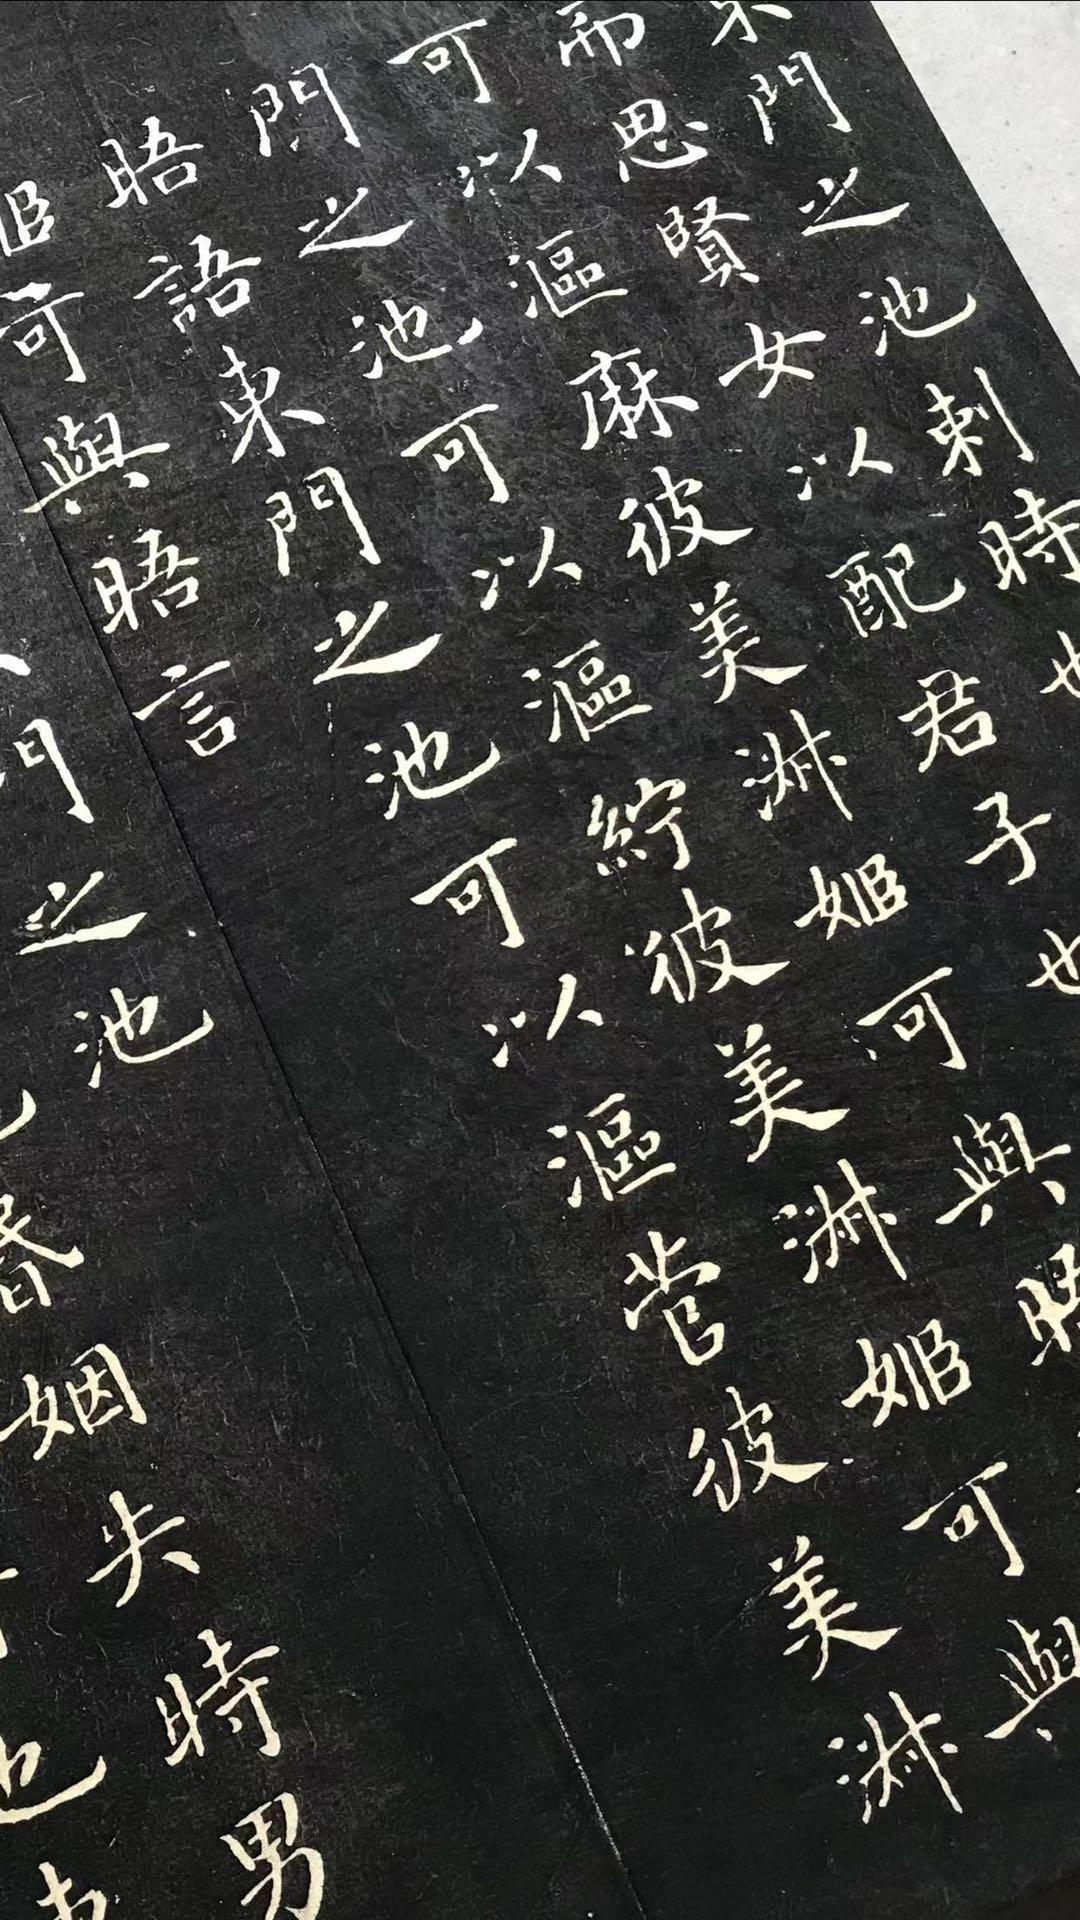 東門之池刺時也
而思賢女以配君子也
可以漚麻彼美淑姬可與晤
門之池可以漚紵彼美淑姬可與
晤語東門之池可以漚菅彼美淑
姬可與晤言
門之池
昏姻失時男